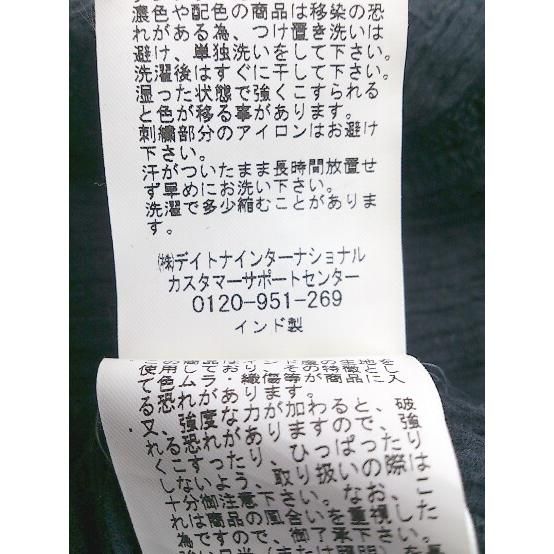 濃色や配色の商品は移染の恐
れがある為、つけ置き洗いは
避け、単独洗いをして下さい。
洗濯後はすぐに干して下さい。
湿った状態で強くこすられる
と色が移る事があります。
刺繍部分のアイロンはお避け
下さい。
汗がついたまま長時間放置せ
ず早めにお洗い下さい。
洗濯で多少縮むことがありま
す。
㈱デイトナインターナショナル
カスタマーサポートセンター
0120-951-269
インド製
使用し
て色ムラ・織傷等が商品に入
る恐れがあります。
又、強度な力が加わると、破
れる恐れがありますので、強
くこすったり、ひっぱったり
しないよう、取り扱いの際は
十分御注意下さい。なお、こ
れは商品の風合いを重視した
為ですので、御了承下さい。